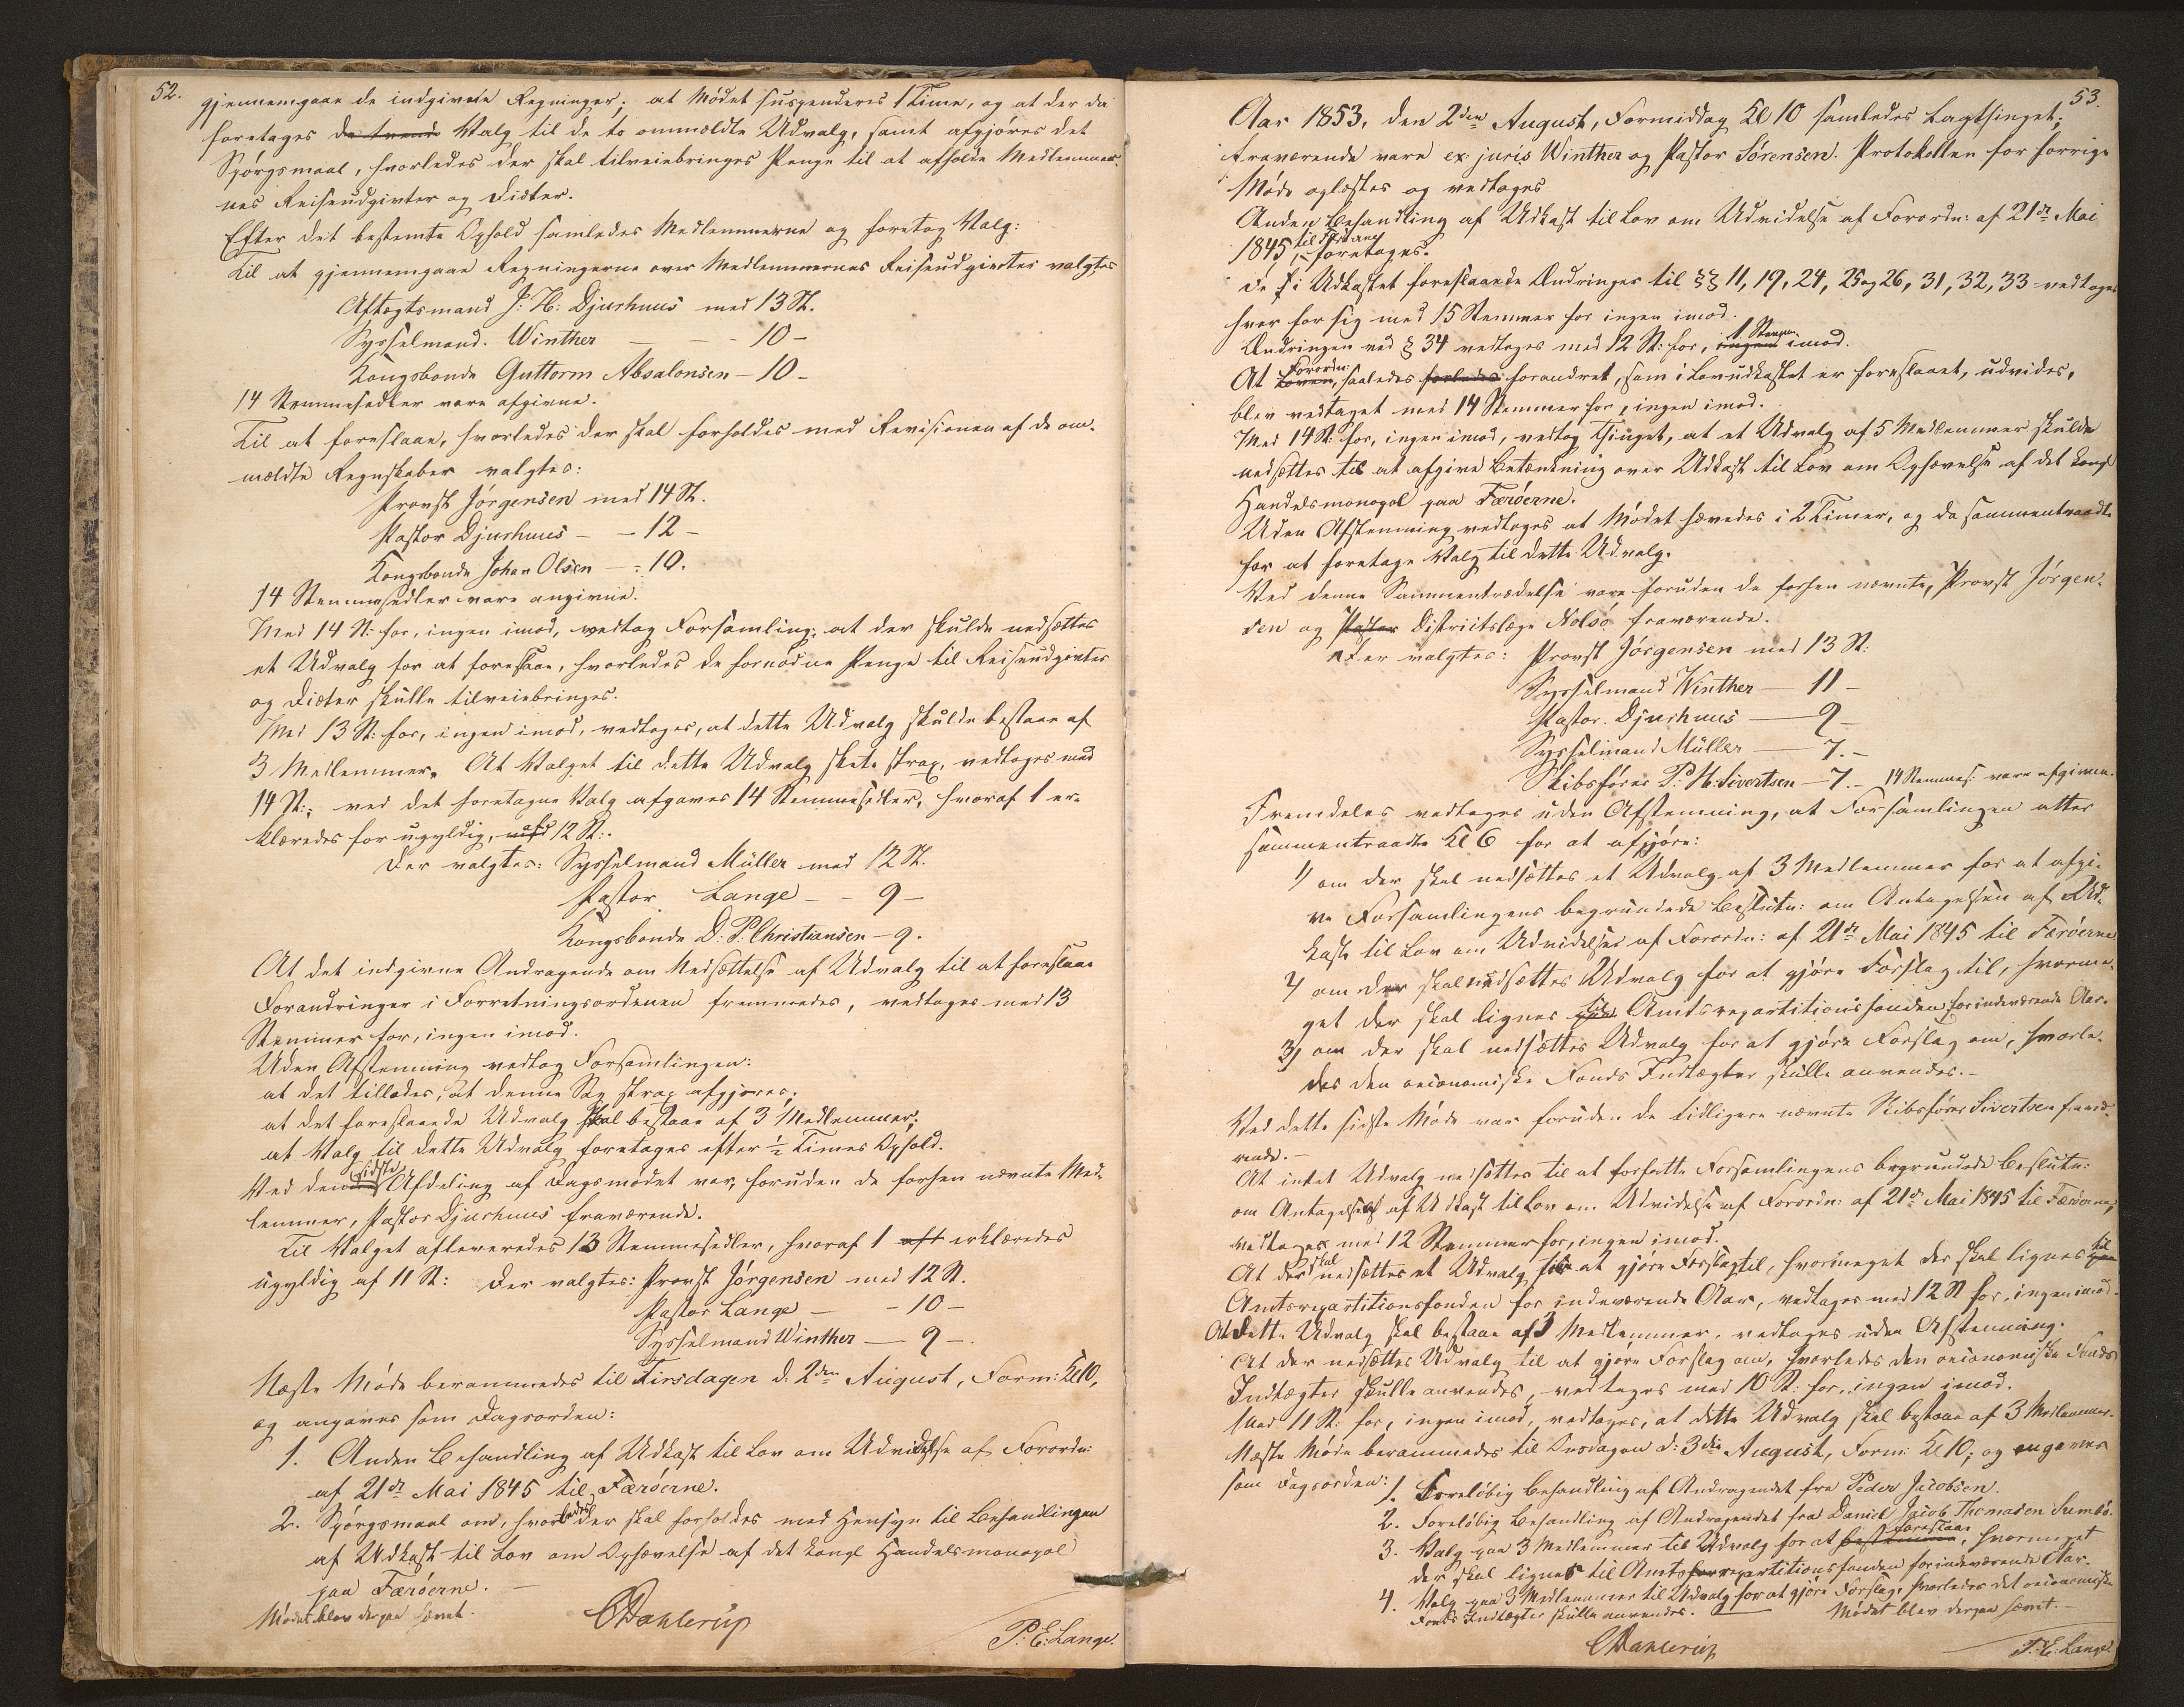 52.
gjennemgaae de indgivne Regninger; at Mødet suspenderes 1 Time, og at der da
foretages da tvende Valg til de to ommeldte Udvalg, samt afgjøres det
Spørgsmaal, hvorledes der skal tilveiebringes Penge til at afholde Medlemmer-
nes Reiseudgivter og Diæter.
Efter det bestemte Ophold samledes Medlemmerne og foretog Valg:
Til at gjennemgaae Regningerne over Medlemmernes Reiseudgivter valgtes
Aftægtsmand J: H: Djurhuus med 13 St.
Sysselmand. Winther — — - 10 -
Kongsbonde Guttorm Absalonsen - 10 -
14 Stemmesedler vare afgivne.
Til at foreslaae, hvorledes der skal forholdes med Revisionen af de om-
meldte Regnskaber valgtes:
Provst Jørgensen med 14 St.
Pastor Djurhuus - - 12 -
Kongsbonde Johan Olsen - - 10.
14 Stemmesedler vare angivne.
Med 14 St: for, ingen imod, vedtog Forsamling: at der skulde nedsættes
et Udvalg for at foreslaae, hvorledes de fornødne Penge til Reiseudgivter
og Diæter skulle tilveiebringes.
Med 13 St: for, ingen imod, vedtoges, at dette Udvalg skulde bestaae af
3 Medlemmer. At Valget til dette Udvalg skete strax, vedtoges med
14 St:; ved det foretagne Valg afgaves 14 Stemmesedler, hvoraf 1 er-
klæredes for ugyldig, af 12 St:.
Der valgtes: Sysselmand Müller med 12 St.
Pastor Lange - - 9 -
Kongsbonde D: P: Christiansen - 9.
At det indgivne Andragende om Nedsættelse af Udvalg til at foreslaae
Forandringer i Forretningsordenen fremmedes, vedtoges med 13
Stemmer for, ingen imod.
Uden Afstemning vedtog Forsamlingen:
at det tillades, at denne Sag strax afgjøres;
at det foreslaaede Udvalg skal bestaae af 3 Medlemmer;
at Valg til dette Udvalg foretages efter ½ Times Ophold.
Ved den sidste Afdeling af Dagsmødet var, foruden de forhen nævnte Med-
lemmer, Pastor Djurhuus fraværende.
Til Valget afleveredes 13 Stemmesedler, hvoraf 1 aft erklæredes
ugyldig af 11 St: Der valgtes: Provst Jørgensen med 12 St.
Pastor Lange — - 10 -
Sysselmand Winther — 9 -
Næste Møde berammedes til Tirsdagen d. 2den August, Form: Kl 10,
og angaves som Dagsorden:
1. Anden Behandling af Udkast til Lov om Udvidelse af Forordn:
af 21de Mai 1845 til Færøerne.
2. Spørgsmaal om, hvorledes der skal forholdes med Hensyn til Behandlingen
af Udkast til Lov om Ophævelse af det kongl Handelsmonopol
paa Færøerne. -
Mødet blev derpaa hævet.
CDahlerup
P: E: Lange.
53.
Aar 1853, den 2den August, Formiddag Kl 10 samledes Lagthinget;
fraværende vare ex: juris Winther og Pastor Sørensen. Protokollen for forrige
Møde oplæstes og vedtoges
Anden Behandling af Udkast til Lov om Udvidelse af Forordn: af 21de Mai
1845 til Færøerne foretoges.
De i Udkastet foreslaaede Ændringer til §§ 11, 19, 24, 25 og 26, 31, 32, 33 vedtoges
hver for sig med 15 Stemmer for ingen imod.
Ændringen ved § 34 vedtoges med 12 St: for, ingen 1 Stemme imod.
At Loven Forordn:, saaledes forandret, som i Lovudkastet er foreslaaet, udvides,
blev vedtaget med 14 Stemmer for, ingen imod.
Med 14 St: for, ingen imod, vedtog Thinget, at et Udvalg af 5 Medlemmer skulde
nedsættes til at afgive Betænkning over Udkast til Lov om Ophævelse af det kongl
Handelsmonopol paa Færøerne.
Uden Afstemning vedtoges at Mødet hævedes i 2 Timer, og da sammentraadte
for at foretage Valg til dette Udvalg.
Ved denne Sammentrædelse vare foruden de forhen nævnte, Provst Jørgen-
sen og Pastor Districtslæge Nolsö fraværende.
Der valgtes: Provst Jørgensen med 13 St:
Sysselmand Winther — 11 -
Pastor. Djurhuus — 9 -
Sysselmand Müller — 7. -
Skibsfører P: H: Sivertsen - 7. - 14 Stemmes: vare afgivne.
Fremdeles vedtoges uden Afstemning, at Forsamlingen atter
sammentraadte Kl 6 for at afgjøre:
1/ om der skal nedsættes et Udvalg af 3 Medlemmer for at afgi-
ve Forsamlingens begrundede Beslutn: om Antagelsen af Ud-
kast til Lov om Udvidelse af Forordn: af 21de Mai 1845 til Færøerne
2/ om der skal nedsættes Udvalg for at gjøre Forslag til, hvorme-
get der skal lignes til Amtsrepartitionsfonden for indeværende Aar.
3/ om der skal nedsættes Udvalg for at gjøre Forslag om, hvorle-
des den oeconomiske Fonds Indtægter skulle anvendes. -
Ved dette sidste Møde var foruden de tidligere nævnte Skibsfører Sivertsen fravæ-
rende. -
At intet Udvalg nedsættes til at forfatte Forsamlingens begrundede Beslutn:
om Antagelsen af Udkast til Lov om Udvidelse af Forordn: af 21de Mai 1845 til Færøerne,
vedtoges med 12 Stemmer for, ingen imod.
At der skal nedsættes et Udvalg for at gjøre Forslag til, hvormeget der skal lignes til
Amtsrepartitionsfonden for indeværende Aar, vedtoges med 12 St for, ingen imod.
At dette Udvalg skal bestaae af 3 Medlemmer, vedtoges uden Afstemning.
At der nedsættes Udvalg til at gjøre Forslag om, hvorledes den oeconomiske Fonds
Indtægter skulle anvendes, vedtoges med 10 St: for, ingen imod.
Med 11 St: for, ingen imod, vedtoges, at dette Udvalg skal bestaae af 3 Medlemmer.
Næste Møde berammedes til Onsdagen d: 3die August, Form: Kl 10; og angaves
som Dagsorden:
1. Foreløbig Behandling af Andragendet fra Peder Jacobsen.
2. Foreløbig Behandling af Andragendet fra Daniel Jacob Thomasen Sumbö.
3. Valg paa 3 Medlemmer til Udvalg for at bestemme foreslaae, hvormeget
der skal lignes til Amtsrepartitionsfonden for indeværende Aar.
4. Valg paa 3 Medlemmer til Udvalg for at gjøre Forslag, hvorledes det oeconomiske
Fonds Indtægter skulle anvendes.
Mødet blev derpaa hævet. -
CDahlerup
P: E: Lange.